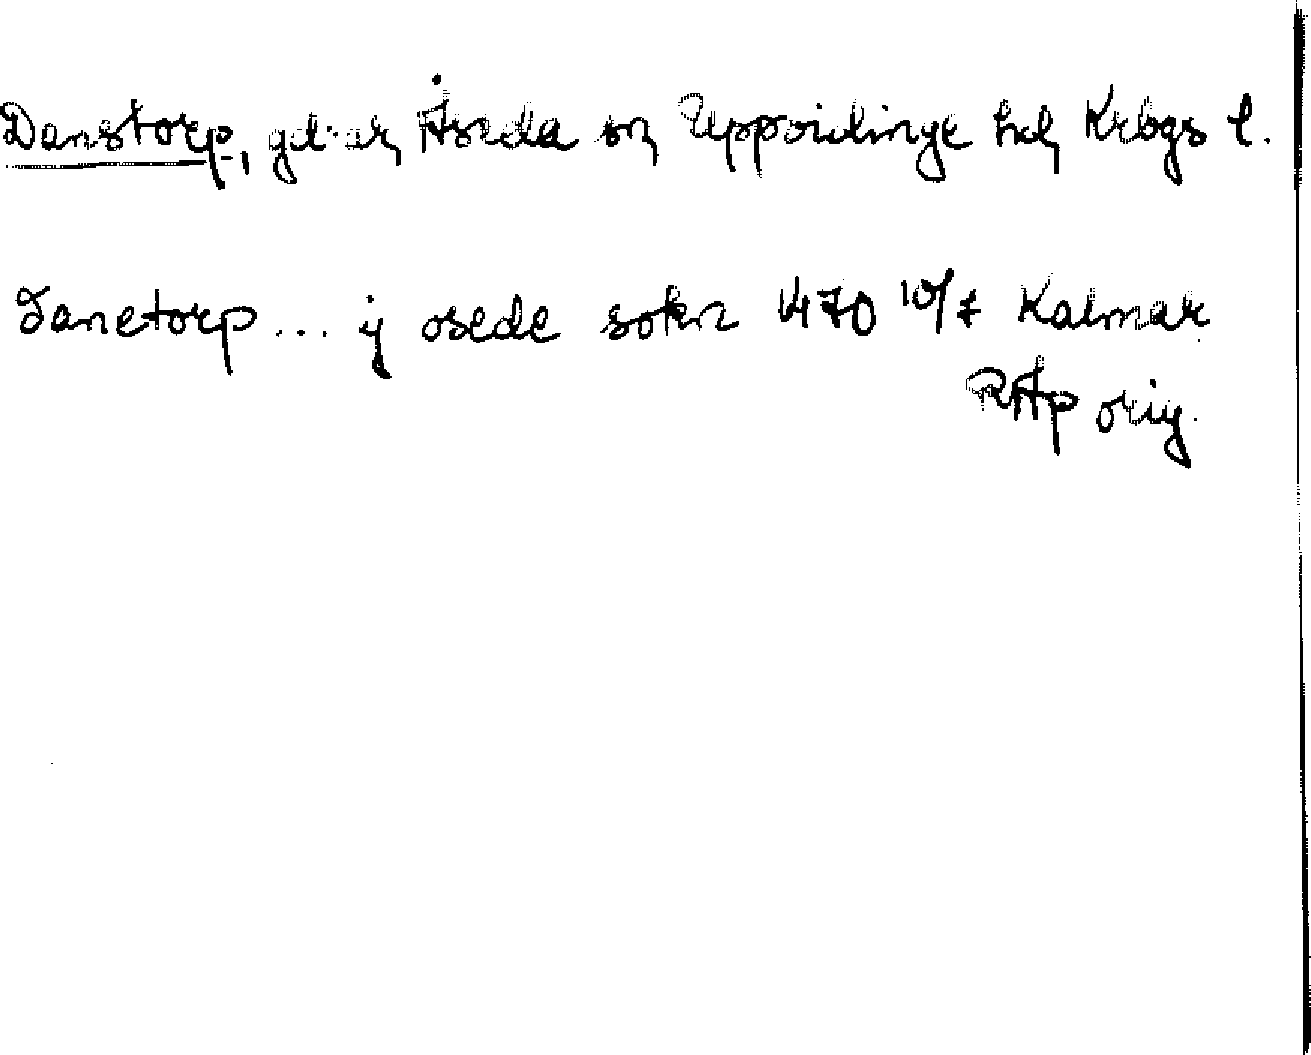 Danstorp, gd·ar, Åseda sn, Uppvidinge hd, Krbgs l.
Danetorp ... ij osede sokn 1470 10/7 Kalmar
RAp orig.